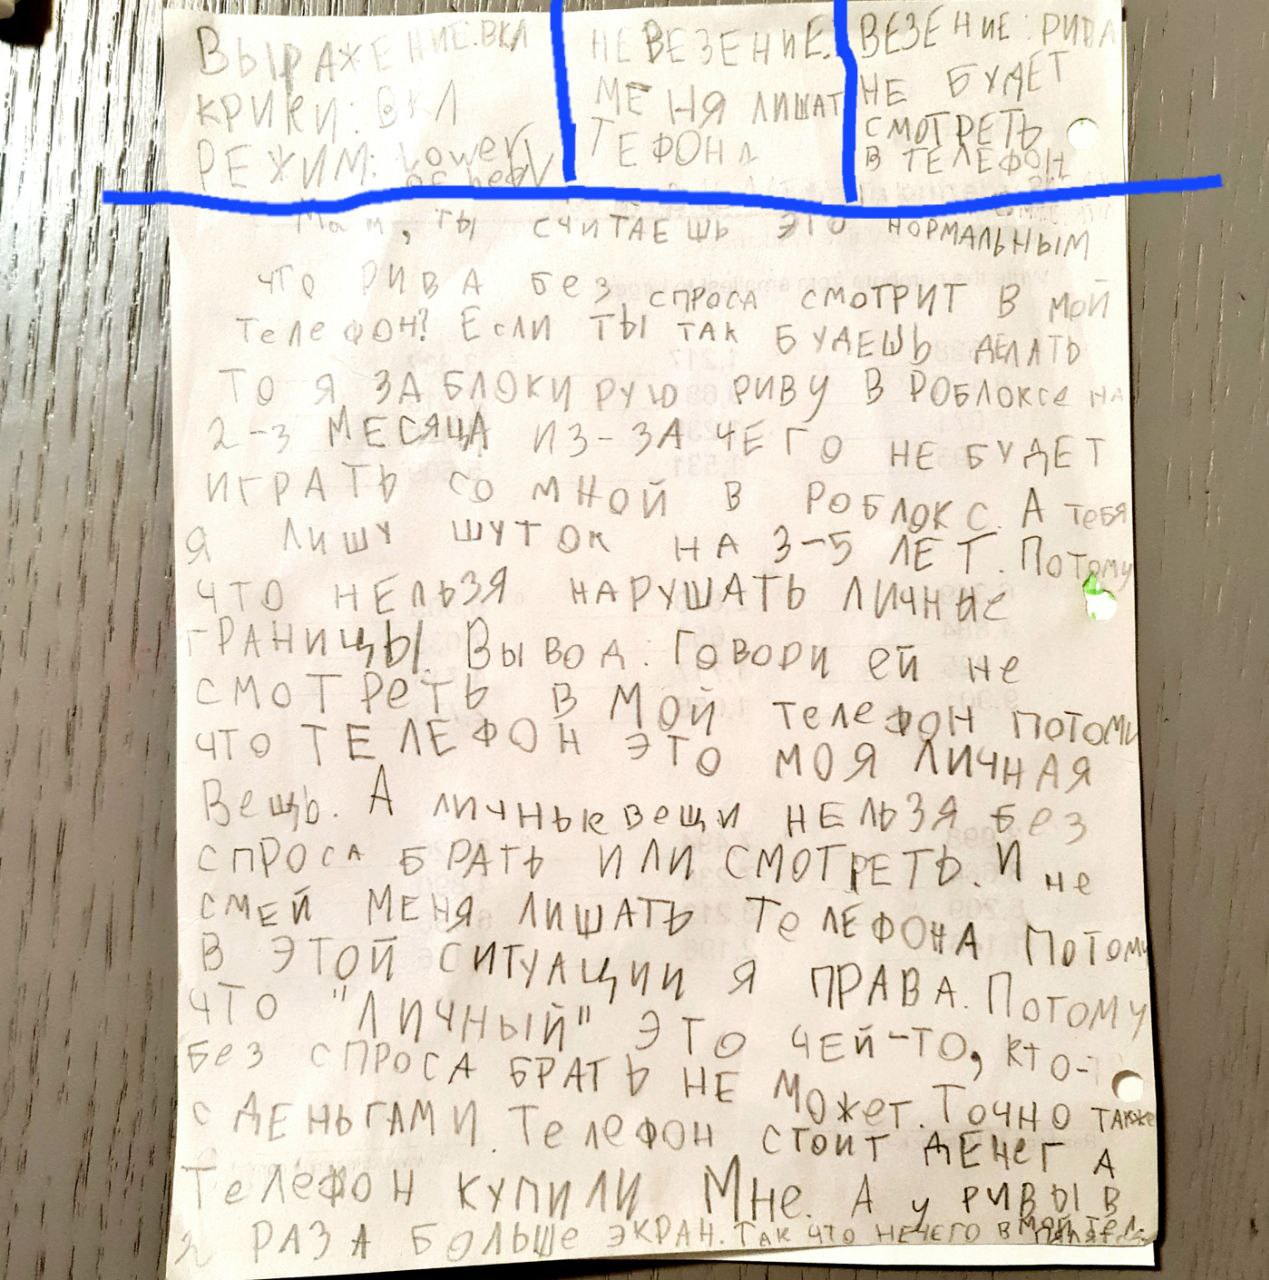 ВЫРАЖЕНИЕ: ВКЛ
КРИКИ: ВКЛ
РЕЖИМ: Lower
of
НЕВЕЗЕНИЕ:
МЕНЯ ЛИШАТ
ТЕФОНА
ВЕЗЕНИЕ: РИВА
НЕ БУДЕТ
СМОТРЕТЬ
В ТЕЛЕФОН
Мам, ты считаешь это нормальным
что Рива без спроса смотрит в мой
телефон? Если ты так будешь делать
то я заблокирую Риву в роблоксе на
2-3 месяца из-за чего не будет
играть со мной в роблокс. А тебя
я лишу шуток на 3-5 лет. Потому
что нельзя нарушать личные
границы. Вывод: Говори ей не
смотреть в мой телефон потому
что телефон это моя личная
вещь. А личные вещи нельзя без
спроса брать или смотреть. И не
смей меня лишать телефона потому
в этой ситуации я права. Потому
что "личный" это чей-то, кто-
без спроса брать не может. Точно также
с деньгами. Телефон стоит денег а
телефон купили мне. А у Ривы в
2 раза больше экран. Так что нечего в мой тел.